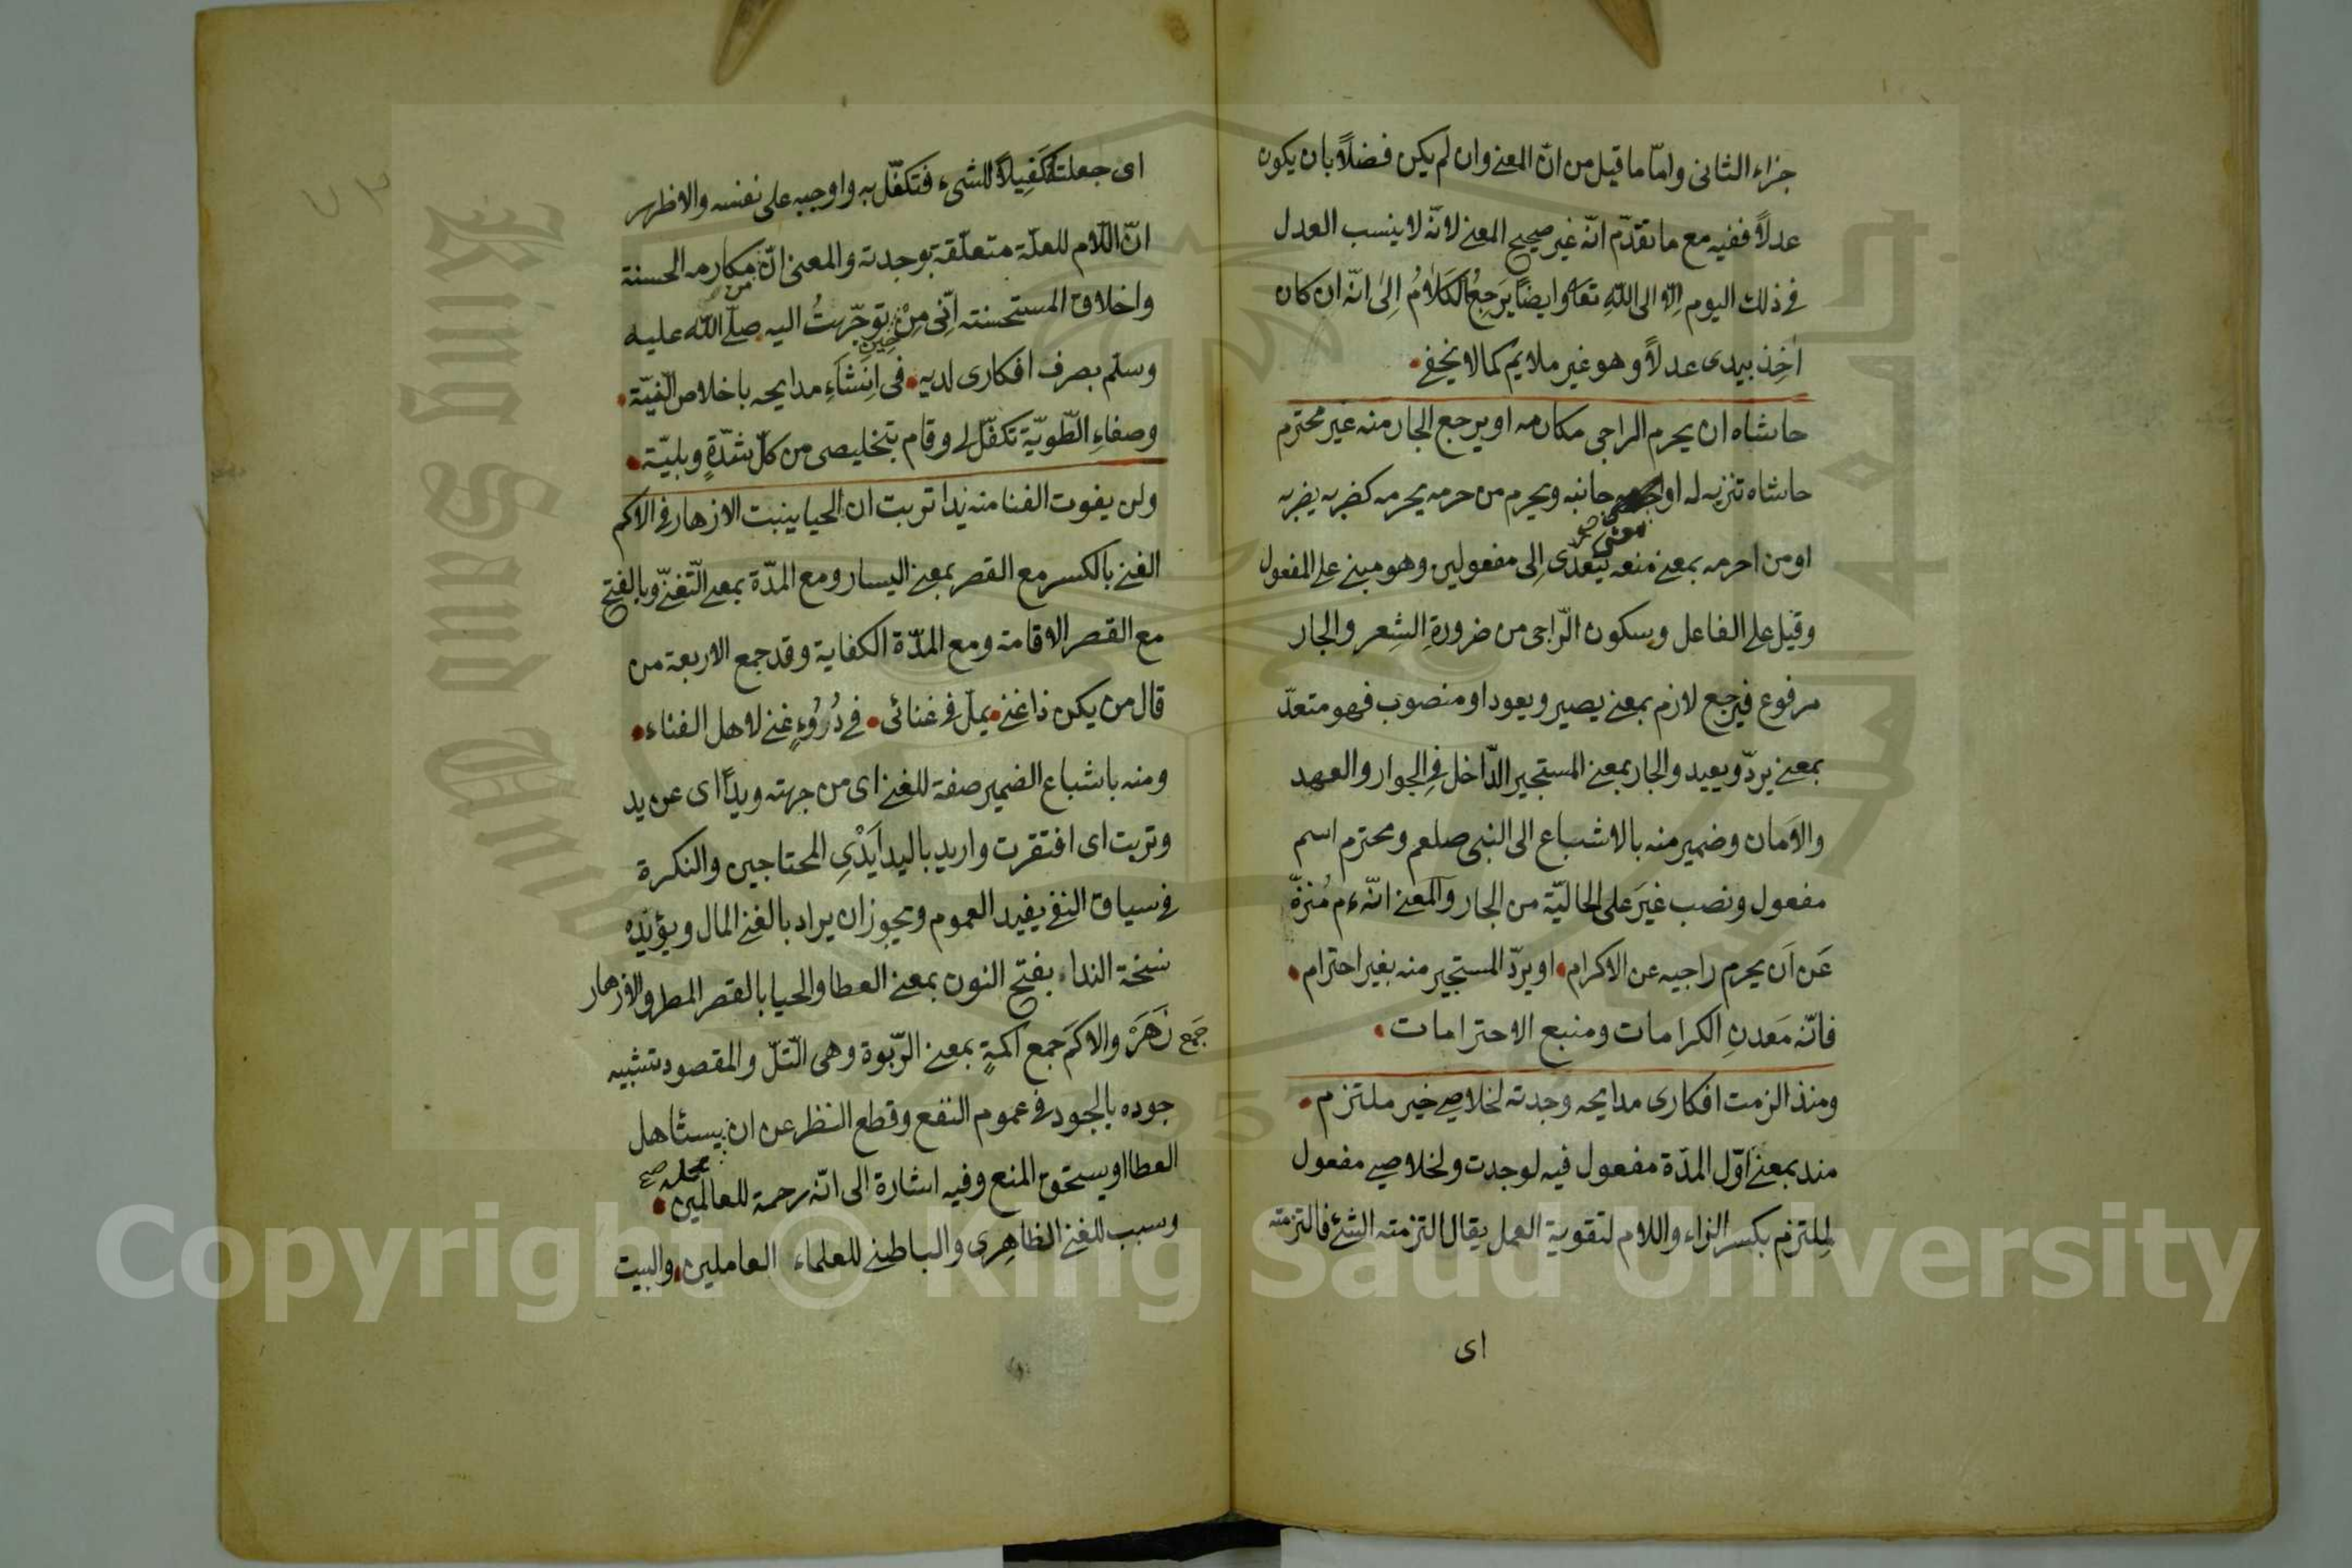 جزاء الثانى وامّا ما قيل من انّ المعنى وان لم يكن فضلاً بان يكون
عدلاً ففيه مع ما تقدّم انّه غير صحيح المعنى لانّه لا ينسب العدل
فى ذلك اليوم اِلاّ الى اللّهِ تعا وايضاً يَرجِعُ الكَلامُ اِلىٰ انّه ان كان
اٰخِذ بيدى عدلاً وهو غير ملايم كما لا يخفى
حاشاه ان يحرم الراجى مكارمه او يرجع الجار منه غير محترم
حاشاه تنزيه له او جانبه ويحرم من حرمه يحرمه كضربه يضربه
معنى صح
او من احرمه بمعنى منعه يتعدّى اِلى مفعولين وهو مبنى على المفعول
وقيل على الفاعل وسكون الرّاجى من ضرورةِ الشِعر والجار
مرفوع فيرجع لازم بمعنى يصير ويعود او منصوب فهو متعدّ
بمعنى يردّ ويعيد والجار بمعنى المستجير الدّاخل فِى الجوار والعهد
والاَمان وضمير منه بالاشباع الى النبى صلعم ومحترم اسم
مفعول ونصب غيَر على الحاليّة من الجار والمعنى انّه ءم مُنزهّ
عَن اَن يحرم راجيه عن الاكرام او يردّ المستجير منه بغير احترام
فانّه مَعدنِ الكرامات ومنبع الاحترامات
ومنذ الزمت افكارى مدايحه وجدته لخلاصى خير ملتزم
منذ بمعنى اوّل المدّة مفعول فيه لوجدت ولخلاصى مفعول
لملتزم بكسر الزاء واللام لتقوية العمل يقال التزمته الشئ فالتزمته
اى
اى جعلته كَفِيلاً للشىء فتكَفّل به واوجبه على نفسه والاظهر
انّ اللّام للعلّة متعلّقة بوجدته والمعنى انّ من مكارمه الحسنة
واخلاق المستحسنة اِنّى مِنْ حين توجّهتُ اليه صلّى اللّه عليه
وسلّم بصرف افكارى لديه فى اِنشَآءِ مدايحه باخلاص النّيّة
وصفاءِ الطّويّة تكفّل لى وقام بتخليصى من كلّ شدّةٍ وبليّة
ولن يفوت الغنا منه يدا تربت ان الحيا ينبت الازهار فى الاكم
الغنى بالكسر مع القصر بمعنى اليسار ومع المدّة بمعنى التّغنّى وبالفتح
مع القصر الاقامة ومع المدّة الكفاية وقد جمع الاربعة من
قال من يكن ذا غنى يملّ فى غنائى فى دُرُوءٍ غنى لاهل الفناء
ومنه باشباع الضمير صفة للغنى اى من جهته ويداً اى عن يد
وتربت اى افتقرت واريد باليد اَيْدِى المحتاجين والنكرة
فى سياق النفى يفيد العموم ويجوز ان يراد بالغنى المال ويؤيّده
نسخة النداء بفتح النون بمعنى العطا والحيا بالقصر المطر والازهار
جَمع زَهَرَة والاكَم جَمع اكمةٍ بمعنى الرّبوة وهى التّلّ والمقصود تشبيه
جوده بالجود فى عموم النفع وقطع النظر عن ان يستأهل
محله صح
العطا او يستحق المنع وفيه اشارة الى انّه رحمة للعالمين
وسبب للغنى الظاهِرى والباطنى للعلماء العاملين والبيت
Copyright © King Saud University
King Saud Univ
1957